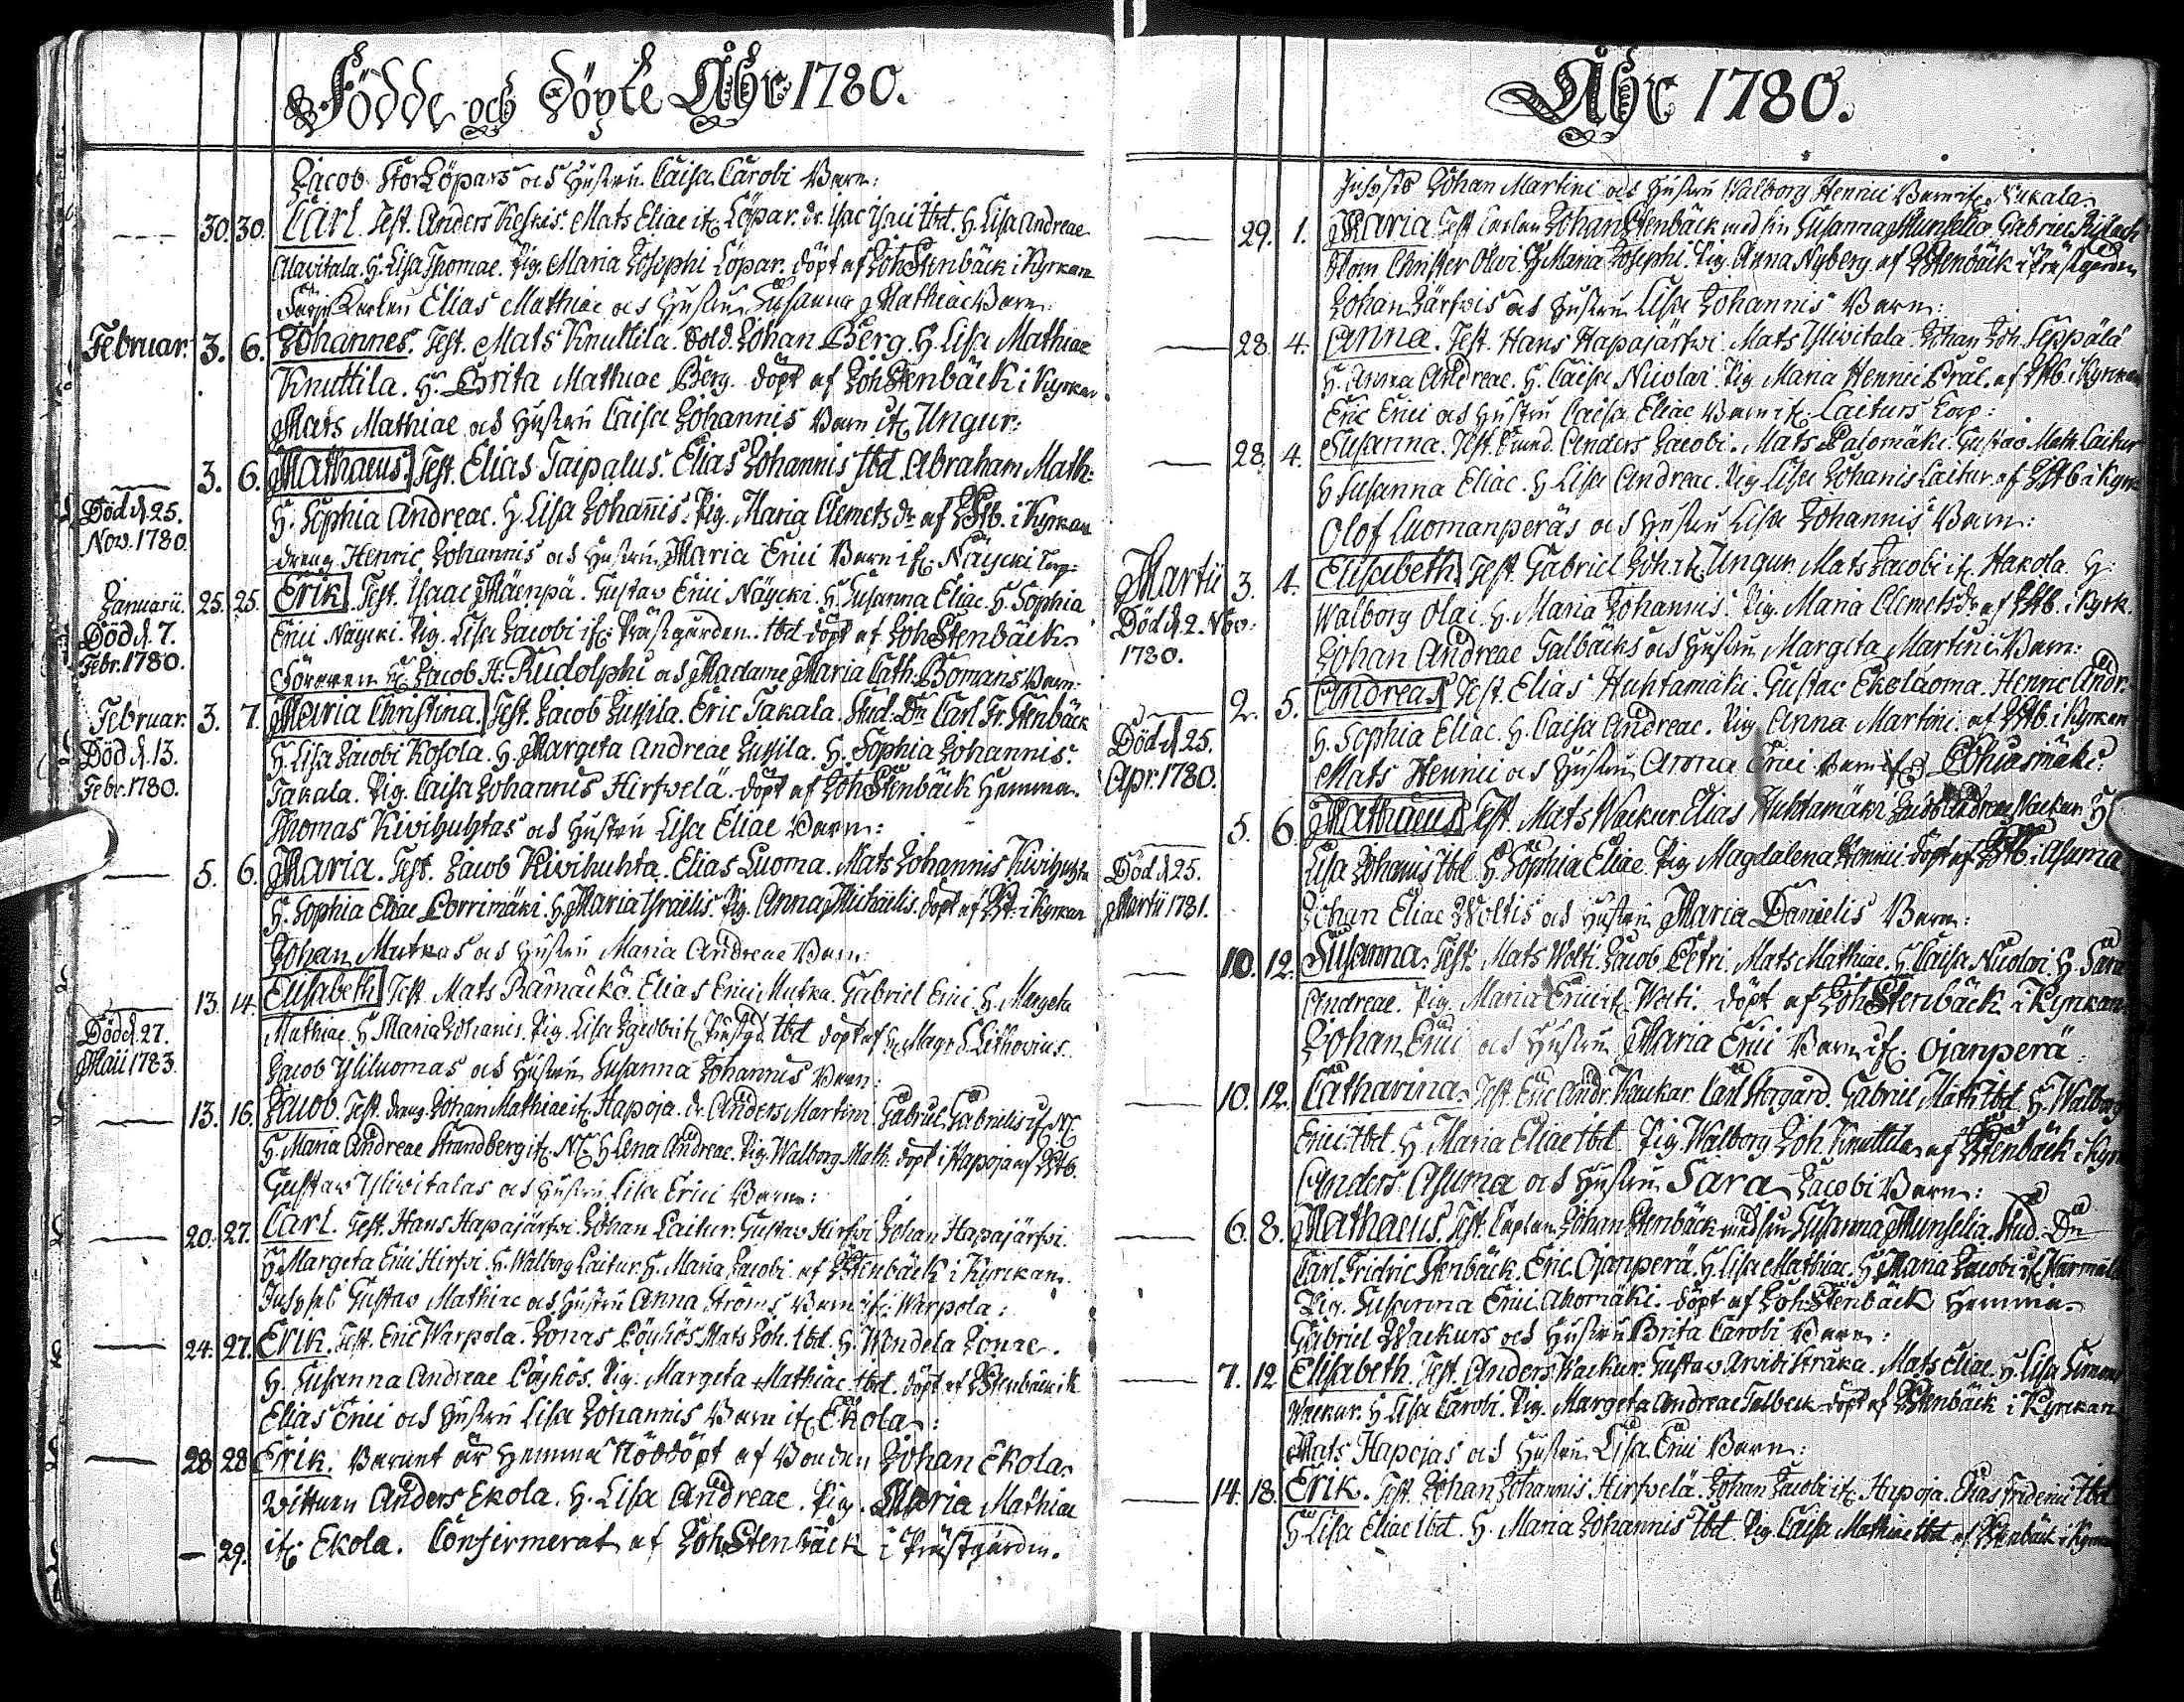 Födde och Döpte Åhr 1780.
Jacob StorLöpars och Hustru Caisa Caroli Barn:
30. 30. Carl. Test. Anders Keskis. Mats Eliae it. Löpar. dr. Isac Isaci Ibd. H. Lisa Andreae
Alavitala. H. Lisa Thomae. Pig. Maria Josephi Löpar. döpt af Joh Stenbäck i Kyrkan
Elias Mathiae och Hustru Susanna Mathiae Barn:
Februar. 3. 6. Johannes. Test. Mats Knuttila. Sold. Johan Berg. H. Lisa Mathiae
Knuttila. H. Brita Mathiae Berg. döpt af Joh Stenbäck i Kyrkan
Mats Mathiae och Hustru Caisa Johannis Barn it. Ungur:
3. 6. Mathaeus. Test. Elias Taipalus. Elias Johannis Ibd. Abraham Math:
Död d. 25. Nov. 1780.
H. Sophia Andreae. H. Lisa Johannis. Pig. Maria Clemets dr. af JStb. i Kyrkan
dreng Henric Johannis och Hustru Maria Erici Barn it. Näycki Torp:
Januarii. 25. 25. Erik. Test. Isaac Mäenpä. Gustav Erici Näycki. H. Susanna Eliae. H. Sophia
Död d. 7. Febr. 1780.
Erici Näycki. Pig. Lisa Jacobi it. Prästgården. Ibd döpt af Joh Stenbäck
Jacob H: Rudolphi och Madame Maria Cath: Bomans Barn:
Februar. 3. 7. Maria Christina. Test. Jacob Jussila. Eric Takala. Stud. Dn Carl Fr. Stenbäck
Död d. 13. Febr. 1780.
H. Lisa Jacobi Kosola. H. Margeta Andreae Jussila. H. Sophia Johannis
Takala. Pig. Caisa Johannis Hirfvelä. döpt af Joh Stenbäck Hemma.
Thomas Kivihuhtas och Hustru Lisa Eliae Barn:
5. 6. Maria. Test. Jacob Kivihuhta. Elias Luoma. Mats Johannis Kivihuhta
H. Sophia Eliae Porrimäki. H. Maria Israëlis. Pig. Anna Michaëlis. döpt af JSt. i Kyrkan
Johan Mutkas och Hustru Maria Andreae Barn:
13. 14. Elisabeth. Test. Mats Rämäckö. Elias Erici Mutka. Gabriel Erici. H. Margeta
Död d. 27. Maii 1783.
Mathiae. H. Maria Johanis. Pig. Lisa Jacobi it. Prästgd Ibd döpt af H. Mag. S. Lithovius.
Jacob Yliluomas och Hustru Susanna Johannis Barn:
13. 16. Jacob. Test. dreng. Johan Mathiae it. Hapoja. dr. Anders Martini. Gabriel Gabrielis it. N
H. Maria Andreae Strandberg it. N. H Lena Andreae. Pig. Walborg Math. döpt i Hapoja af JStb.
Gustaw Ylivitalas och Hustru Lisa Erici Barn:
20. 27. Carl. Test. Hans Hapajärfvi. Johan Laitur. Gustav Hirfvi. Johan Hapajärfvi.
H. Margeta Erici Hirfvi. H. Walborg Laitur. H. Maria Jacobi af JStenbäck i Kyrkan.
Gustav Mathiae och Hustru Anna Ströms Barn it. Warpola:
24. 27. Erik. Test. Eric Warpola. Jonas Löyhös. Mats Joh. Ibd. H. Wendela Jonae.
H. Susanna Andreae Löyhös. Pig. Margeta Mathiae Ibd. döpt af JStenbäck i K
Elias Erici och Hustru Lisa Johannis Barn it Ekola:
28 28 Erik. Barnet är Hemma Nöddöpt af Bonden Johan Ekola.
Wittnen Anders Ekola. H. Lisa Andreae. Pig. Maria Mathiae
29. it. Ekola. Confirmerat af Joh Stenbäck i Prästgården.
Åhr 1780.
Johan Martini och Hustru Walborg Henrici Barn it. Nukala
29. 1. Maria. Test. Caplan Johan Stenbäck med sin Susanna Munselia. Gabriel
Christer Olivi. H Maria Josephi. Pig. Anna Nyberg af JStenbäck i Prästgården
Johan Järfvis och Hustru Lisa Johannis Barn:
28. 4. Anna. Test. Hans Hapajärfvi. Mats Ylivitala. Johan Joh. Seppälä
H. Anna Andreae. H. Caisa Nicolai. Pig. Maria Henrici af JStb. i Kyrkan
Eric Erici och Hustru Caisa Eliae Barn it. Laiturs torp:
28. 4. Susanna. Test. Anders Jacobi. Mats Palomäki. Gustav Math Laitur
H Susanna Eliae. H Lisa Andreae. Pig Lisa Johanis Laitur. af JStb i Kyrk
Olof Luomanperäs och Hustru Lisa Johannis Barn:
Martii 3. 4. Elisabeth. Test. Gabriel Joh. it. Ungur. Mats Jacobi it. Hakola. H:
Död d. 2. Nov: 1780.
Walborg Olai. H. Maria Johannis. Pig. Maria Clemets dr af JStb. i Kyrk.
Johan Andreae Talbacks och Hustru Margeta Martini Barn:
2. 5. Andreas. Test. Elias Huhtamäki. Gustav Ekoluoma. Henric Andr.
Död d. 25. Apr. 1780.
H. Sophia Eliae. H. Caisa Andreae. Pig. Anna Martini. af JStb. i Kyrkan
Mats Henrici och Hustru Anna Erici Barn it. Lohiasmäki:
5. 6. Mathaeus. Test. Mats Wackur. Elias Huhtamäki. Andreae Wackur. H
Död d 25. Martii 1781.
Lisa Johannis Ibd. H Sophia Eliae. Pig Magdalena Henrici döpt af JStb. i Asuma
Johan Eliae Woltis och Hustru Maria Danielis Barn:
10. 12. Susanna. Test. Mats Wolti. Jacob Petri. Mats Mathiae. H. Caisa Nicolai. H. Sara
Andreae. Pig. Maria Erici it. Wolti. döpt af Joh Stenbäck i Kyrkan
Johan Erici och Hustru Maria Erici Barn it. Ojanperä
10. 12. Catharina. Test. Eric Andr. Kaukar. Carl Storgård. Gabriel Math Ibd. H. Walborg
Erici Ibd. H. Maria Eliae Ibd. Pig Walborg Joh. Knuttila af JStenbäck i Kyrk
Anders Asuma och Hustru Sara Jacobi Barn:
6. 8. Mathaeus. Test. Caplan Johan Stenbäck med sin Susanna Munselia. Stud. Dn
Carl Fridric Stenbäck. Eric Ojanperä. H. Lisa Mathiae. H. Maria Jacobi it.
Pig. Susanna Erici Ahomäki. döpt af Joh: Stenbäck Hemma.
Gabriel Wackurs och Hustru Brita Caroli Barn:
7. 12 Elisabeth. Test. Anders Wackur. Gustav Arvidi Stråka. Mats Eliae. H. Lisa Simons
Wackur. H Lisa Caroli. Pig. Margeta Andreae Talback döpt af JStenbäck i Kyrkan
Mats Hapojas och Hustru Lisa Erici Barn:
14. 18. Erik. Test. Johan Johannis Hirfvelä. Johan Jacobi it. Hapoja. Elias Friderici Ibd
H Lisa Eliae Ibd. H. Maria Johannis Ibd. Pig. Caisa Mathiae Ibd af JStenbäck i Kyrkan